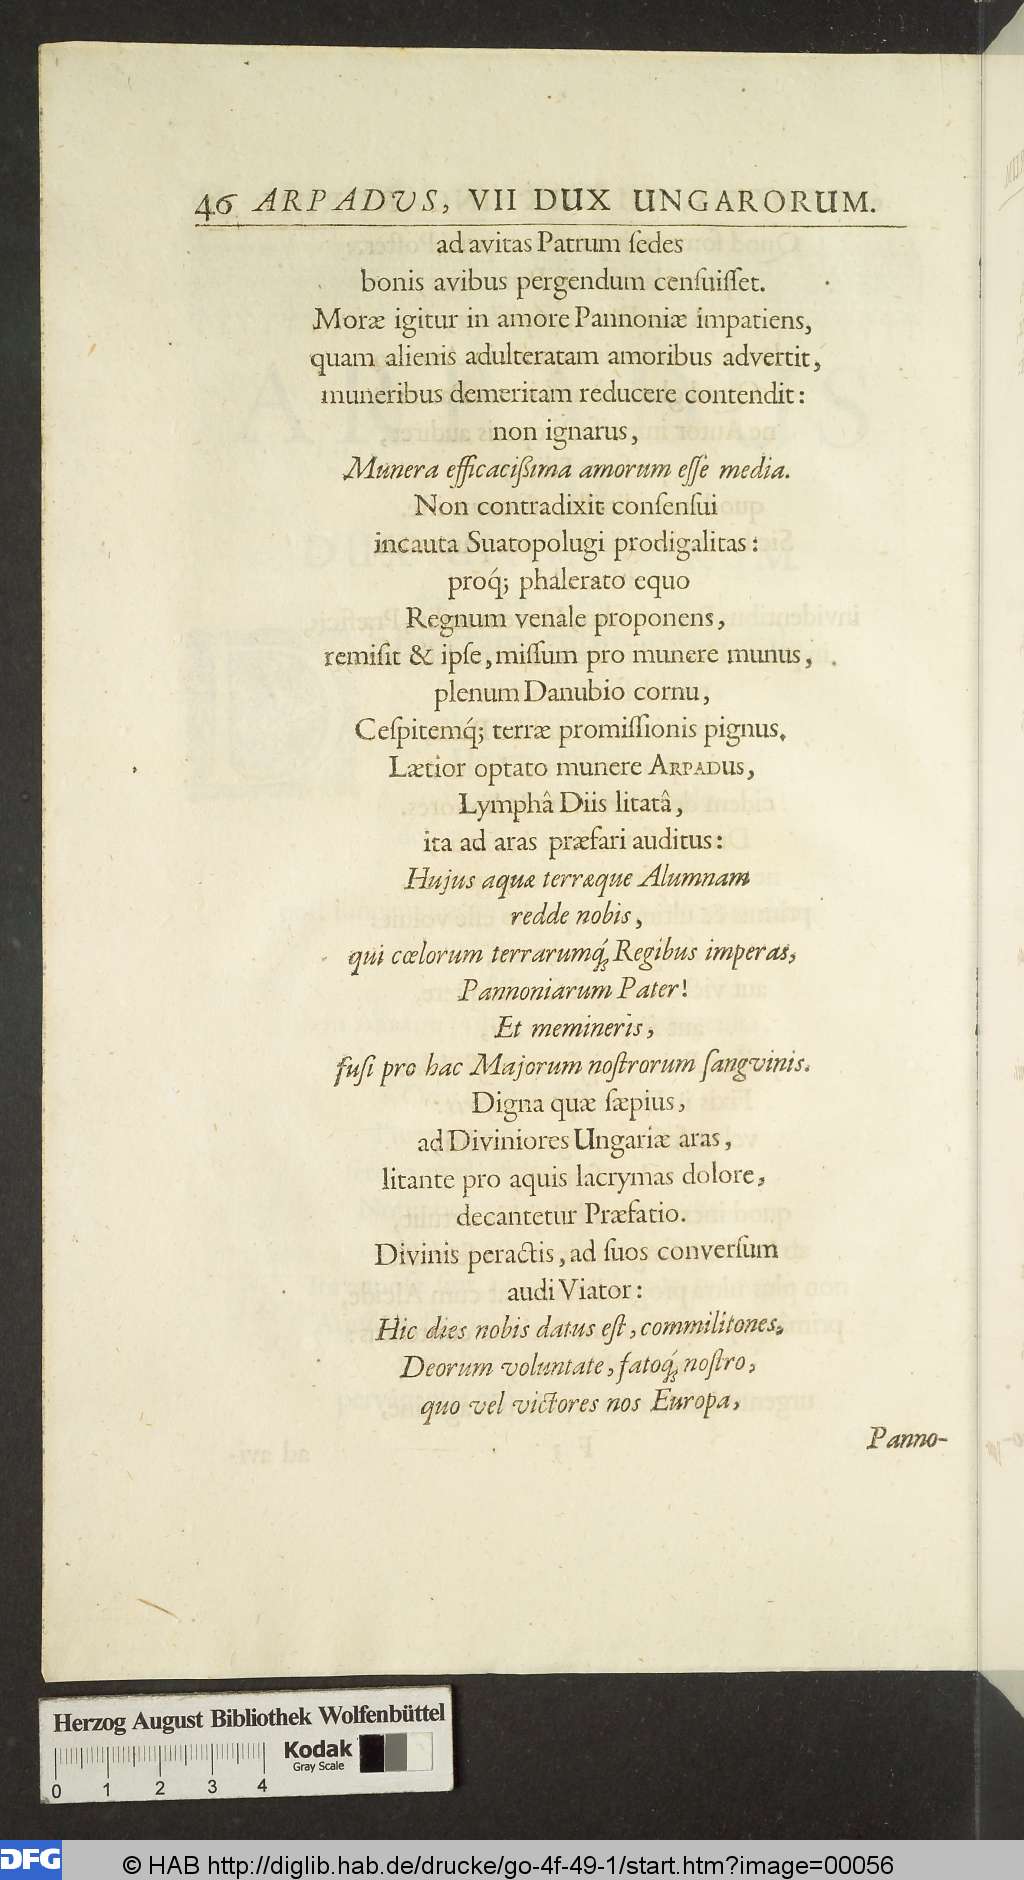 46 ARPADVS, VII DUX UNGARORUM.
ad avitas Patrum ſedes
bonis avibus pergendum cenſuiſſet.
Moræ igitur in amore Pannoniæ impatiens,
quam alienis adulteratam amoribus advertit,
muneribus demeritam reducere contendit:
non ignarus,
Munera efficacißima amorum eſſe media.
Non contradixit conſenſui
incauta Suatopolugi prodigalitas:
proq́; phalerato equo
Regnum venale proponens,
remiſit & ipſe, miſſum pro munere munus,
plenum Danubio cornu,
Ceſpitemq́; terræ promiſſionis pignus.
Lætior optato munere ARPADus,
Lymphâ Diis litatâ,
ita ad aras præfari auditus:
Hujus aquæ terræque Alumnam
redde nobis,
qui cœlorum terrarumq́; Regibus imperas,
Pannoniarum Pater!
Et memineris,
fuſi pro hac Majorum noſtrorum ſangvinis.
Digna quæ ſæpius,
ad Diviniores Ungariæ aras,
litante pro aquis lacrymas dolore,
decantetur Præfatio.
Divinis peractis, ad ſuos converſum
audi Viator:
Hic dies nobis datus eſt, commilitones,
Deorum voluntate, fatoq́; noſtro,
quo vel victores nos Europa,
Panno-
Herzog August Bibliothek Wolfenbüttel
Kodak
Gray Scale
0 1 2 3 4
DFG
© HAB http://diglib.hab.de/drucke/go-4f-49-1/start.htm?image=00056